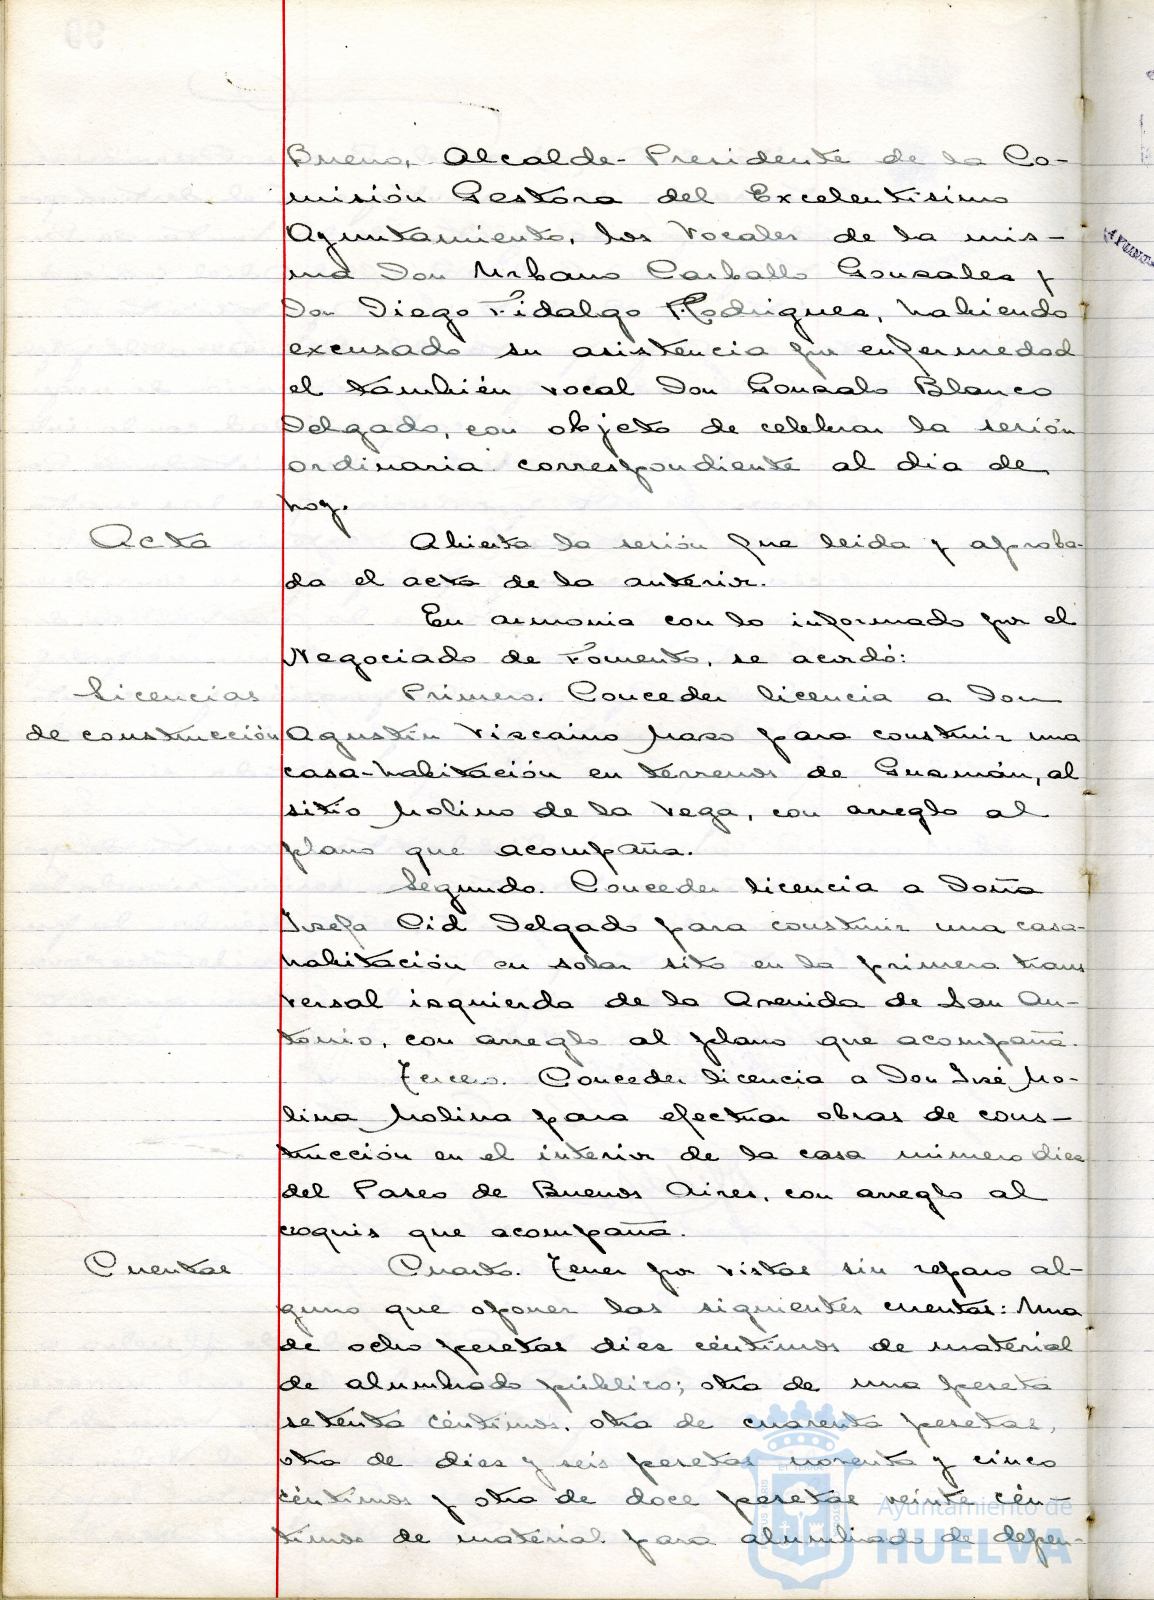 Bueno, Alcalde-Presidente de la Co-
misión Gestora del Excelentisimo
Ayuntamiento, los Vocales de la mis-
ma Don Urbano Carballo Gonzalez y
Don Diego Fidalgo Rodriguez, habiendo
excusado su asistencia por enfermedad
el también vocal Don Gonzalo Blanco
Delgado, con objeto de celebrar la sesión
ordinaria correspondiente al dia de
hoy.
Acta
Abierta la sesión fue leida y aproba-
da el acta de la anterior.
En armonia con lo informado por el
Negociado de Fomento, se acordó:
Licencias
de construcción
Primero. Conceder licencia a Don
Agustín Vizcaino para construir una
casa-habitación en terrenos de Guzmán, al
sitio Molino de la Vega, con arreglo al
plano que acompaña.
Segundo. Conceder licencia a Doña
Josefa Cid Delgado para construir una casa-
habitación en solar sito en la primera trans
versal izquierda de la Avenida de San An-
tonio, con arreglo al plano que acompaña.
Tercero. Conceder licencia a Don José Mo-
lina Molina para efectuar obras de cons-
trucción en el interior de la casa número diez
del Paseo de Buenos Aires, con arreglo al
croquis que acompaña.
Cuentas
Cuarto. Tener por vistas sin reparo al-
guno que oponer las siguientes cuentas: Una
de ocho pesetas diez céntimos de material
de alumbrado público; otra de una peseta
setenta céntimos, otra de cuarenta pesetas,
otra de diez y seis pesetas noventa y cinco
céntimos y otra de doce pesetas veinte cén-
timos de material para alumbrado de depen-
Ayuntamiento de
HUELVA